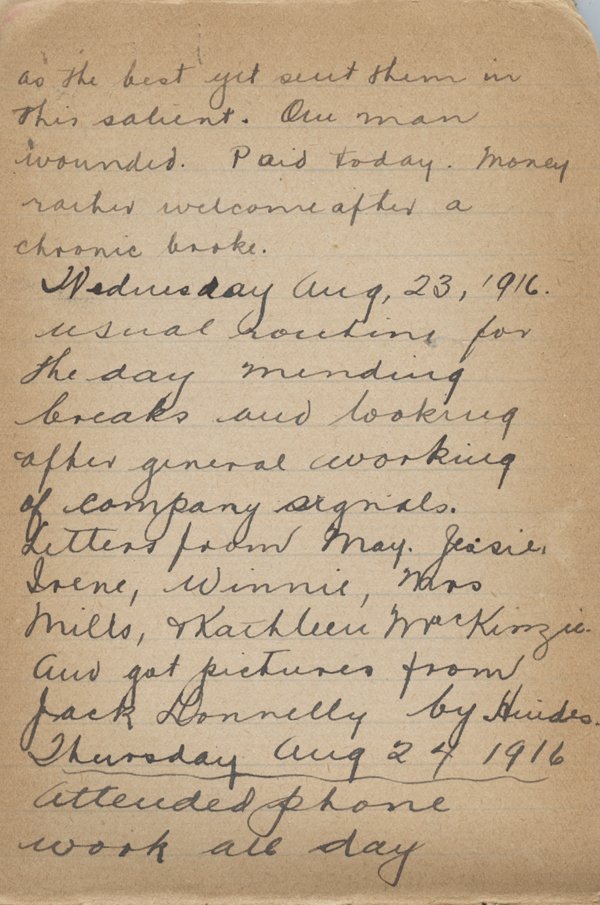 as the best yet sent them in
this salient. One man
wounded. Paid today. Money
rather welcome after a
chronic broke.
Wednesday Aug, 23, 1916.
usual routine for
the day mending
breaks and looking
after general working
of company signals.
Letters from May. Jessie,
Irene, Winnie, Mrs
Mills, & Kathleen MacKinzie.
And got pictures from
Jack Donnelly by Hinds.
Thursday Aug 24 1916
Attended phone
work all day